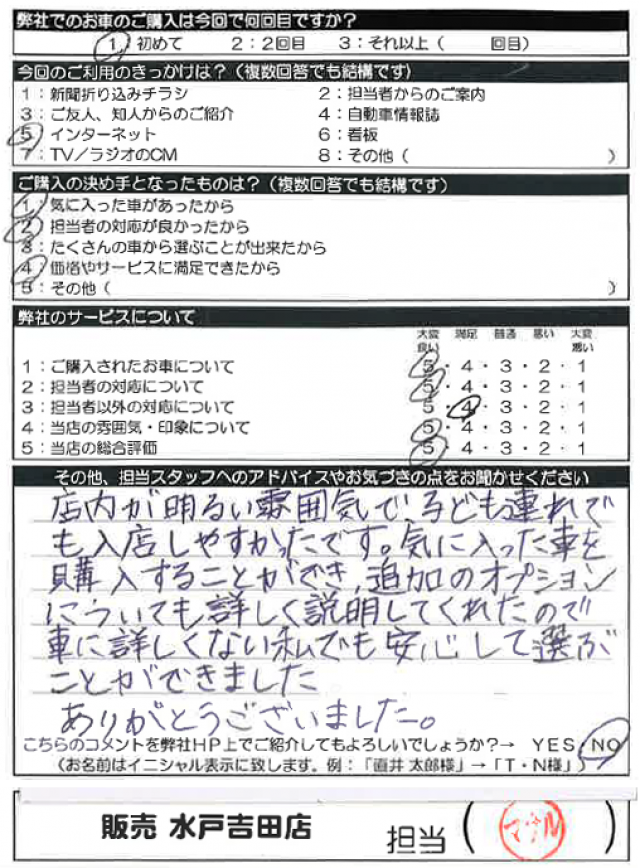 弊社でのお車のご購入は今回で何回目ですか?
1:初めて 2:2回目 3:それ以上( 回目)
今回のご利用のきっかけは?(複数回答でも結構です)
1:新聞折り込みチラシ 2:担当者からのご案内
3:ご友人、知人からのご紹介 4:自動車情報誌
5:インターネット 6:看板
7:TV/ラジオのCM 8:その他( )
ご購入の決め手となったものは?(複数回答でも結構です)
1:気に入った車があったから
2:担当者の対応が良かったから
3:たくさんの車から選ぶことが出来たから
4:価格やサービスに満足できたから
5:その他( )
弊社のサービスについて
大変良い 満足 普通 悪い 大変悪い
1:ご購入されたお車について 5・4・3・2・1
2:担当者の対応について 5・4・3・2・1
3:担当者以外の対応について 5・4・3・2・1
4:当店の雰囲気・印象について 5・4・3・2・1
5:当店の総合評価 5・4・3・2・1
その他、担当スタッフへのアドバイスやお気づきの点をお聞かせください
店内が明るい雰囲気で、子ども連れで
も入店しやすかったです。気に入った車を
購入することができ、追加のオプション
についても詳しく説明してくれたので
車に詳しくない私でも安心して選ぶ
ことができました
ありがとうございました。
こちらのコメントを弊社HP上でご紹介してもよろしいでしょうか?→ YES/NO
(お名前はイニシャル表示に致します。例:「直井 太郎様」→「T・N様」)
販売 水戸吉田店 担当( )